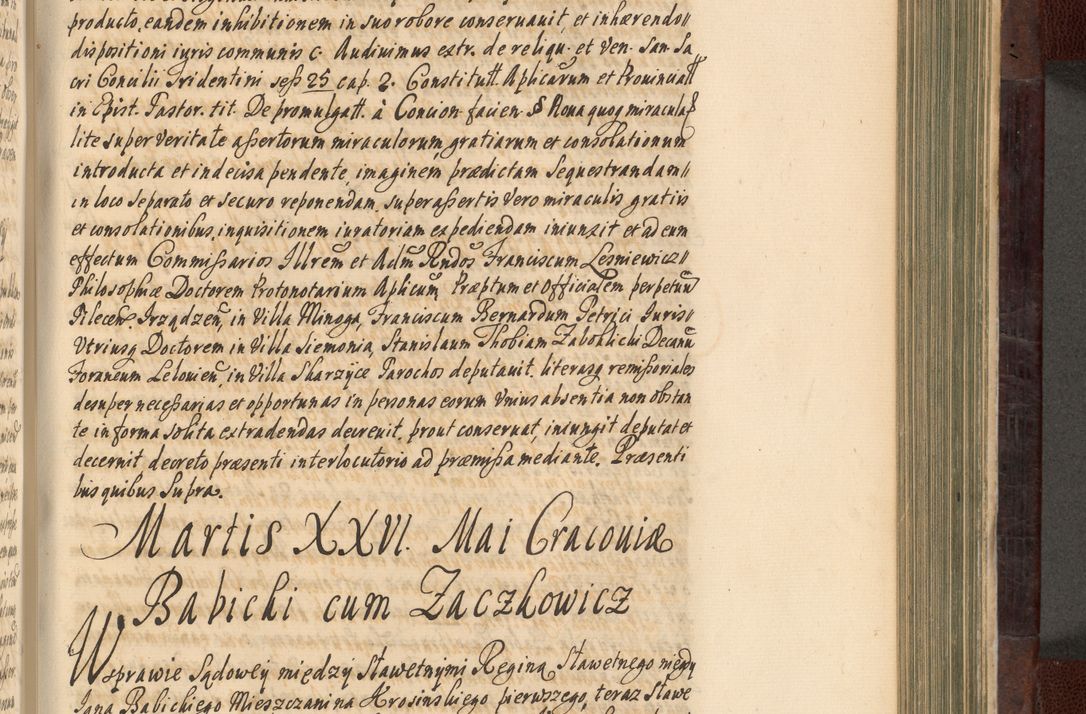 producto, eandem inhibitionem in suo robore conseruauit, et inhærendo //
dispositioni iuris communis c. Audiuimus extr. de reliqu. et Ven. San. Sa
cri Concilii Tridentini seß 25 cap. 2. Constitutt. Aplicarum et Prouinciatt
in Epist. Pastor. tit. De promulgatt. à Concion facien § Noua quoq miracula
lite super veritate aßertorum miraculorum, gratiarum et consolationum
introducta et indecisa pendente, imaginem prædictam sequestrandam //
in loco separato et securo reponendam, super aßertis vero miraculis gratiis
et consolationibus, inquisitionem iuratoriam expediendam iniunxit et ad eum
effectum Commißarios Illrem et Adm Rndos Franciscum Lesniewicz //
Philosophiæ Doctorem Protonotarium Aplicum, Præptum et Officialem perpetuu
Pilecen. Irządzen, in Villa Minoga, Franciscum Bernardum Petrici Iuris //
Vtriusq Doctorem in Villa Siemonia, Stanislaum Thobiam Zabokliclzi Decanu
Foraneum Lelouien, in Villa Skarzyce Parochos deputauit. literasq remißoriales
desuper neceßarias et opportunas in personas eorum vnius absentia non obstan
te in forma solita extradendas decreuit, prout conseruat, iniungit deputat et
decernit, decreto præsenti interlocutorio ad præmißa mediante. Præsenti
bus quibus supra.
Martis XXVI. Mai Cracouiæ
Babicki cum Zaczkowicz
W sprawie Sądowey między Sławetnymi Reginą, Sławetnego niegdy
Jana Babickiego Mieszczanina Krosinskiego pierwszego, teraz Sławe